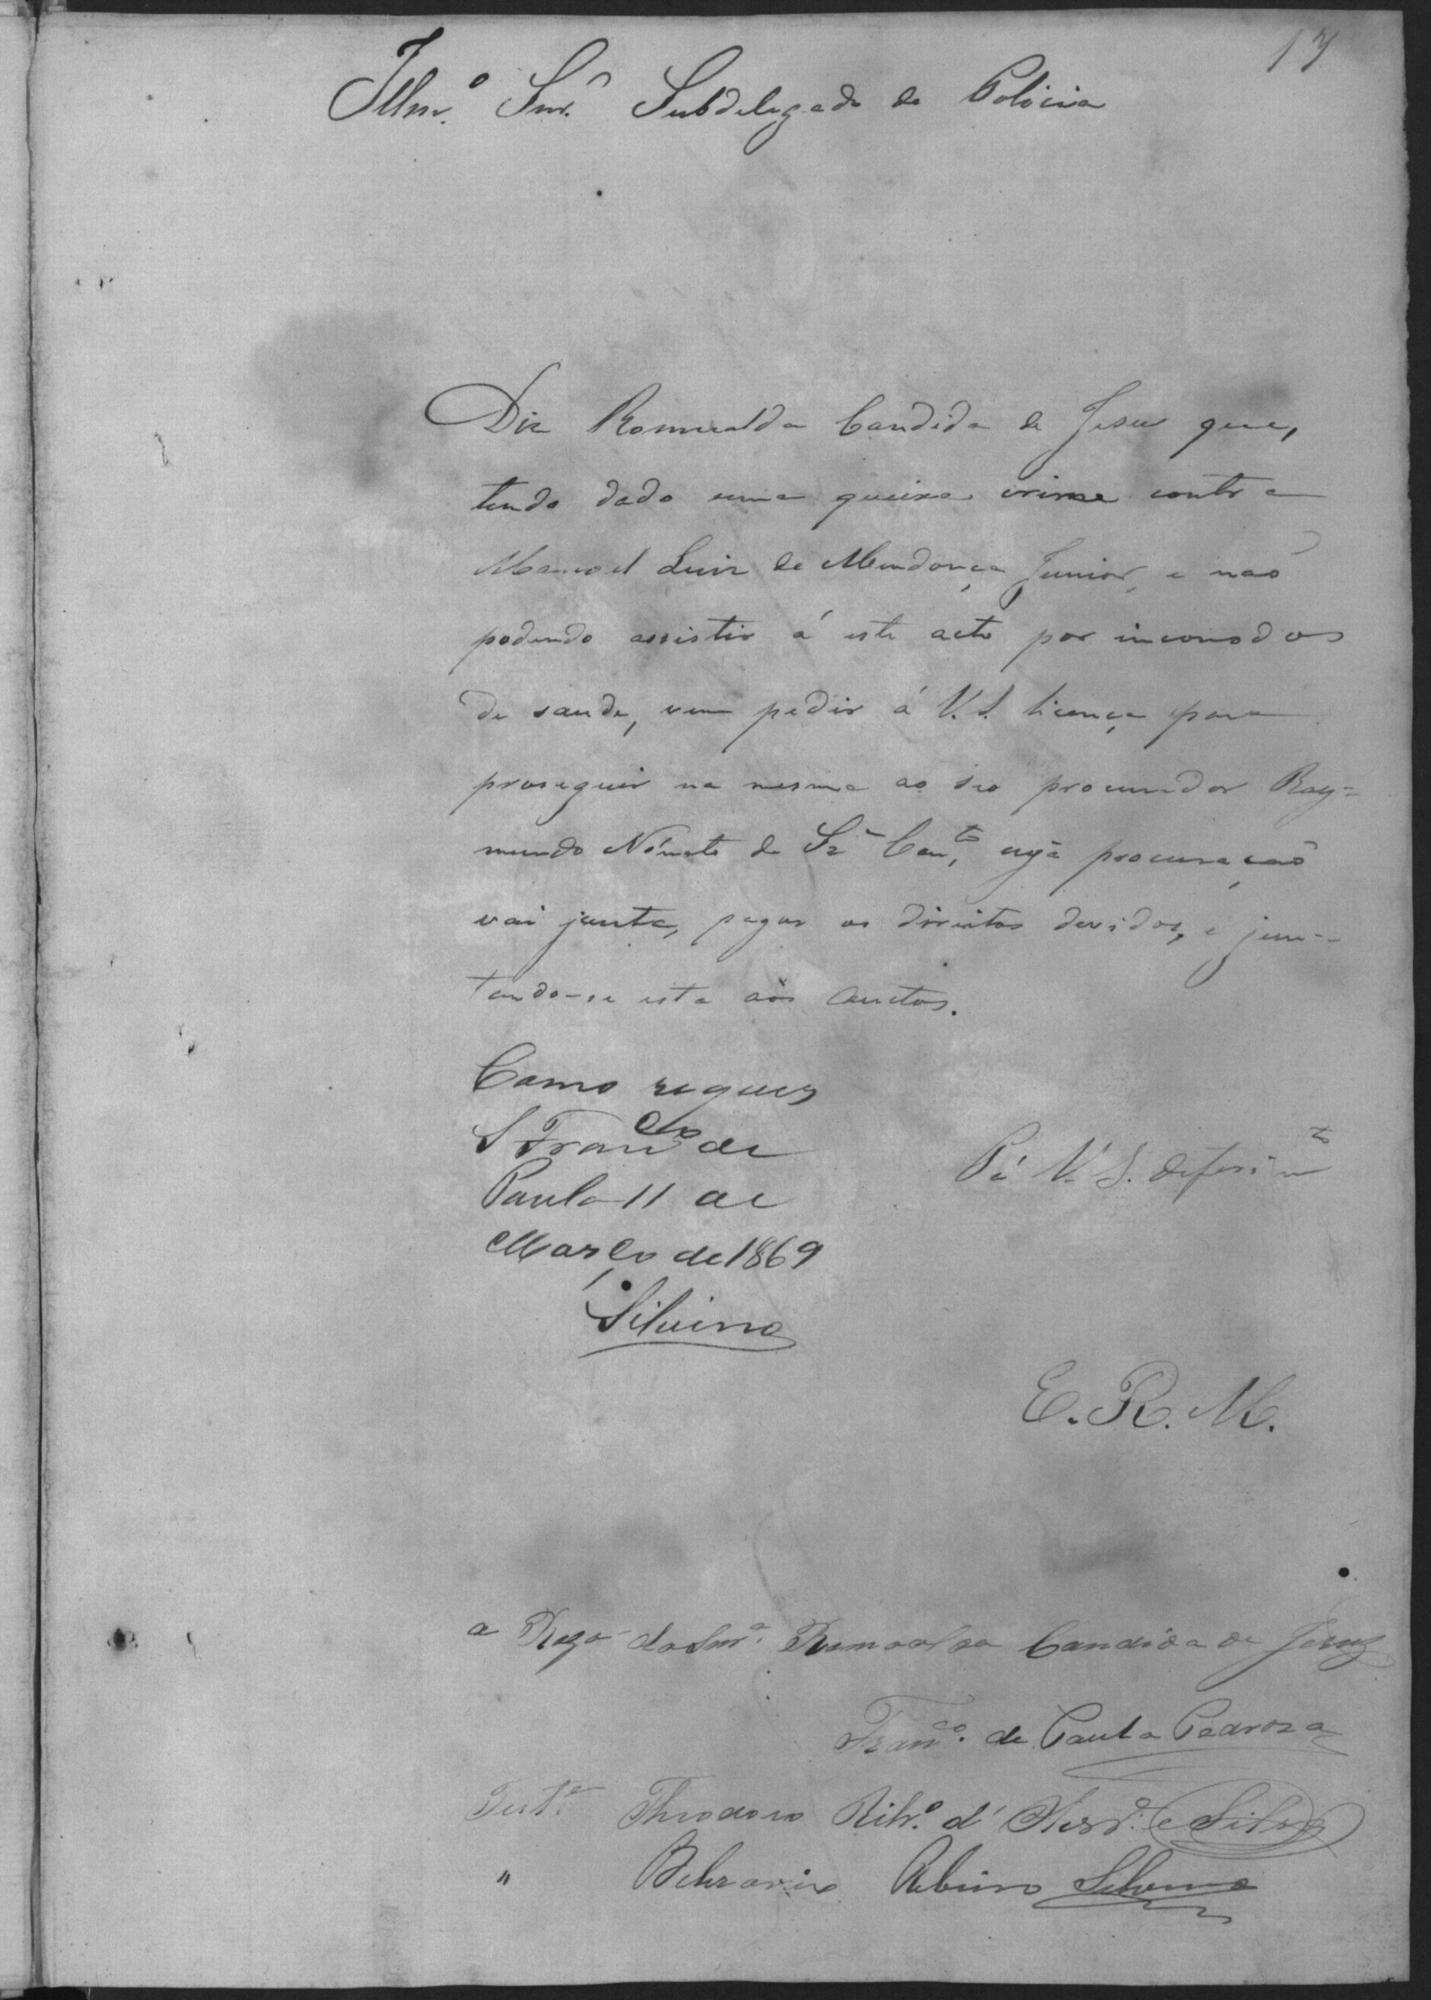 17
Illmo. Snr. Subdelegado de Policia
Diz Romualda Candida de Jesus que,
tendo dado uma queixa crime contra
Manoel Luiz de Mendonça Junior, e naõ
podendo assistir á este acto por incomodos
de saude, vem pedir á V. S. licença para
proseguir na mesma ao seo procurador Ray=
mundo Nónato de Sza Cou.to, cuja procuraçaõ
vai junta, pagos os direitos devidos, e jun-
tando-se esta aos autos.
Como requer
S Franco de
Paula 11 de
Março de 1869
Silvino
P. á V. S. deferimto
E. R. M.
a Rogo da Snra. Romoalda Candida de Jesuz
Franco. de Paula Pedroza
Test.e Theodoro Ribro. d' e Silva
" Ribeiro